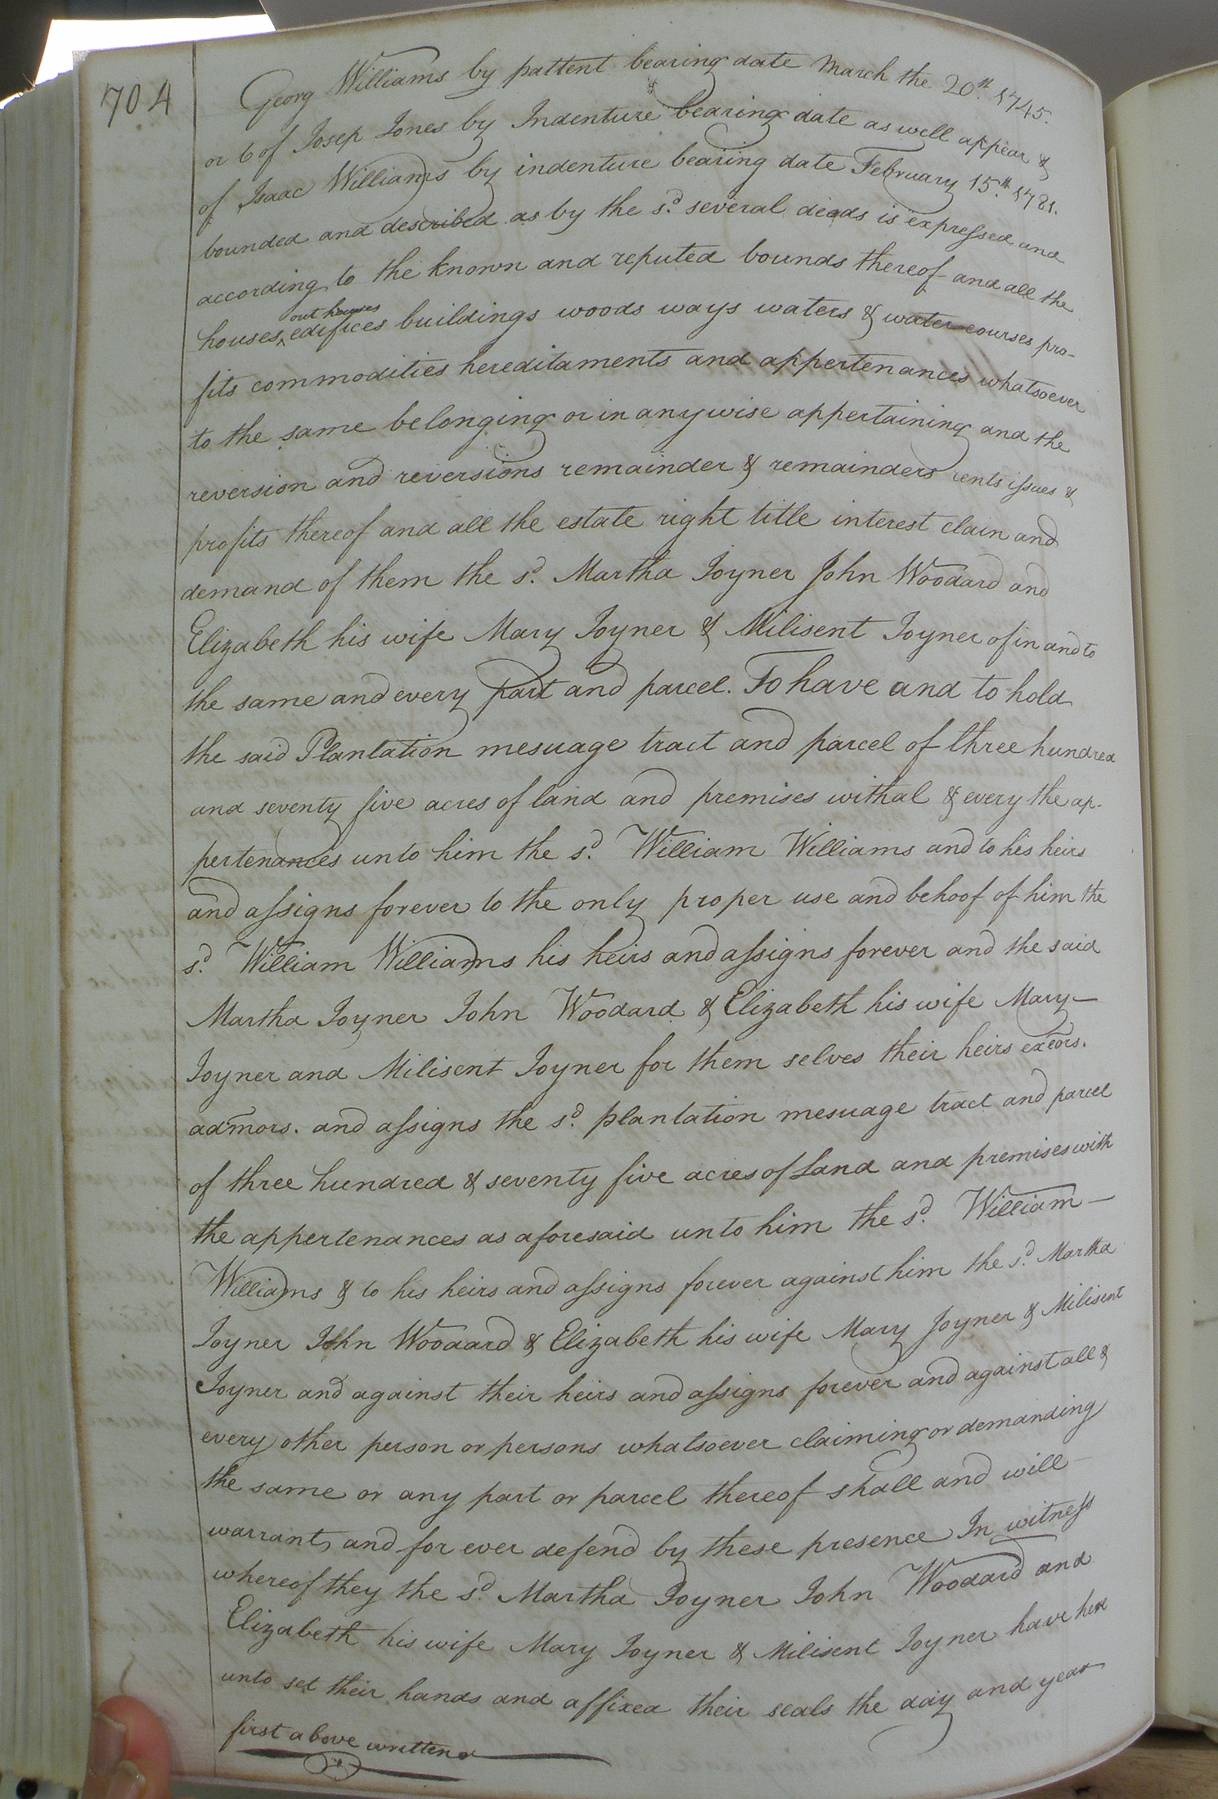 704
Georg Williams by pattent bearing date March the 20th 1745.
or 6 of Josep Jones by Indenture bearing date as well appear &
of Isaac Williams by indenture bearing date February 15th 1781.
bounded and described as by the sd. several deeds is expressed and
according to the known and reputed bounds thereof and all the
out houses
houses, edifices buildings woods ways waters & water courses pro-
fits commodities hereditaments and appertenances whatsoever
to the same belonging or in any wise appertaining and the
reversion and reversions remainder & remainders rents issues &
profits thereof and all the estate right title interest claim and
demand of them the sd. Martha Joyner John Woodard and
Elizabeth his wife Mary Joyner & Milisent Joyner of in and to
the same and every part and parcel. To have and to hold
the said Plantation mesuage tract and parcel of three hundred
and seventy five acres of land and premises withal & every the ap-
pertenances unto him the sd. William Williams and to his heirs
and assigns forever to the only proper use and behoof of him the
sd. William Williams his heirs and assigns forever and the said
Martha Joyner John Woodard & Elizabeth his wife Mary
Joyner and Milisent Joyner for them selves their heirs exeors.
admors. and assigns the sd. plantation mesuage tract and parcel
of three hundred & seventy five acres of Land and premises with
the appertenances as aforesaid unto him the sd. William
Williams & to his heirs and assigns forever against him the sd. Martha
Joyner John Woodard & Elizabeth his wife Mary Joyner & Milisent
Joyner and against their heirs and assigns forever and against all &
every other person or persons whatsoever claiming or demanding
the same or any part or parcel thereof shall and will
warrant and for ever defend by these presence In witness
whereof they the sd. Martha Joyner John Woodard and
Elizabeth his wife Mary Joyner & Milisent Joyner have here
unto set their hands and affixed their seals the day and year
first above written